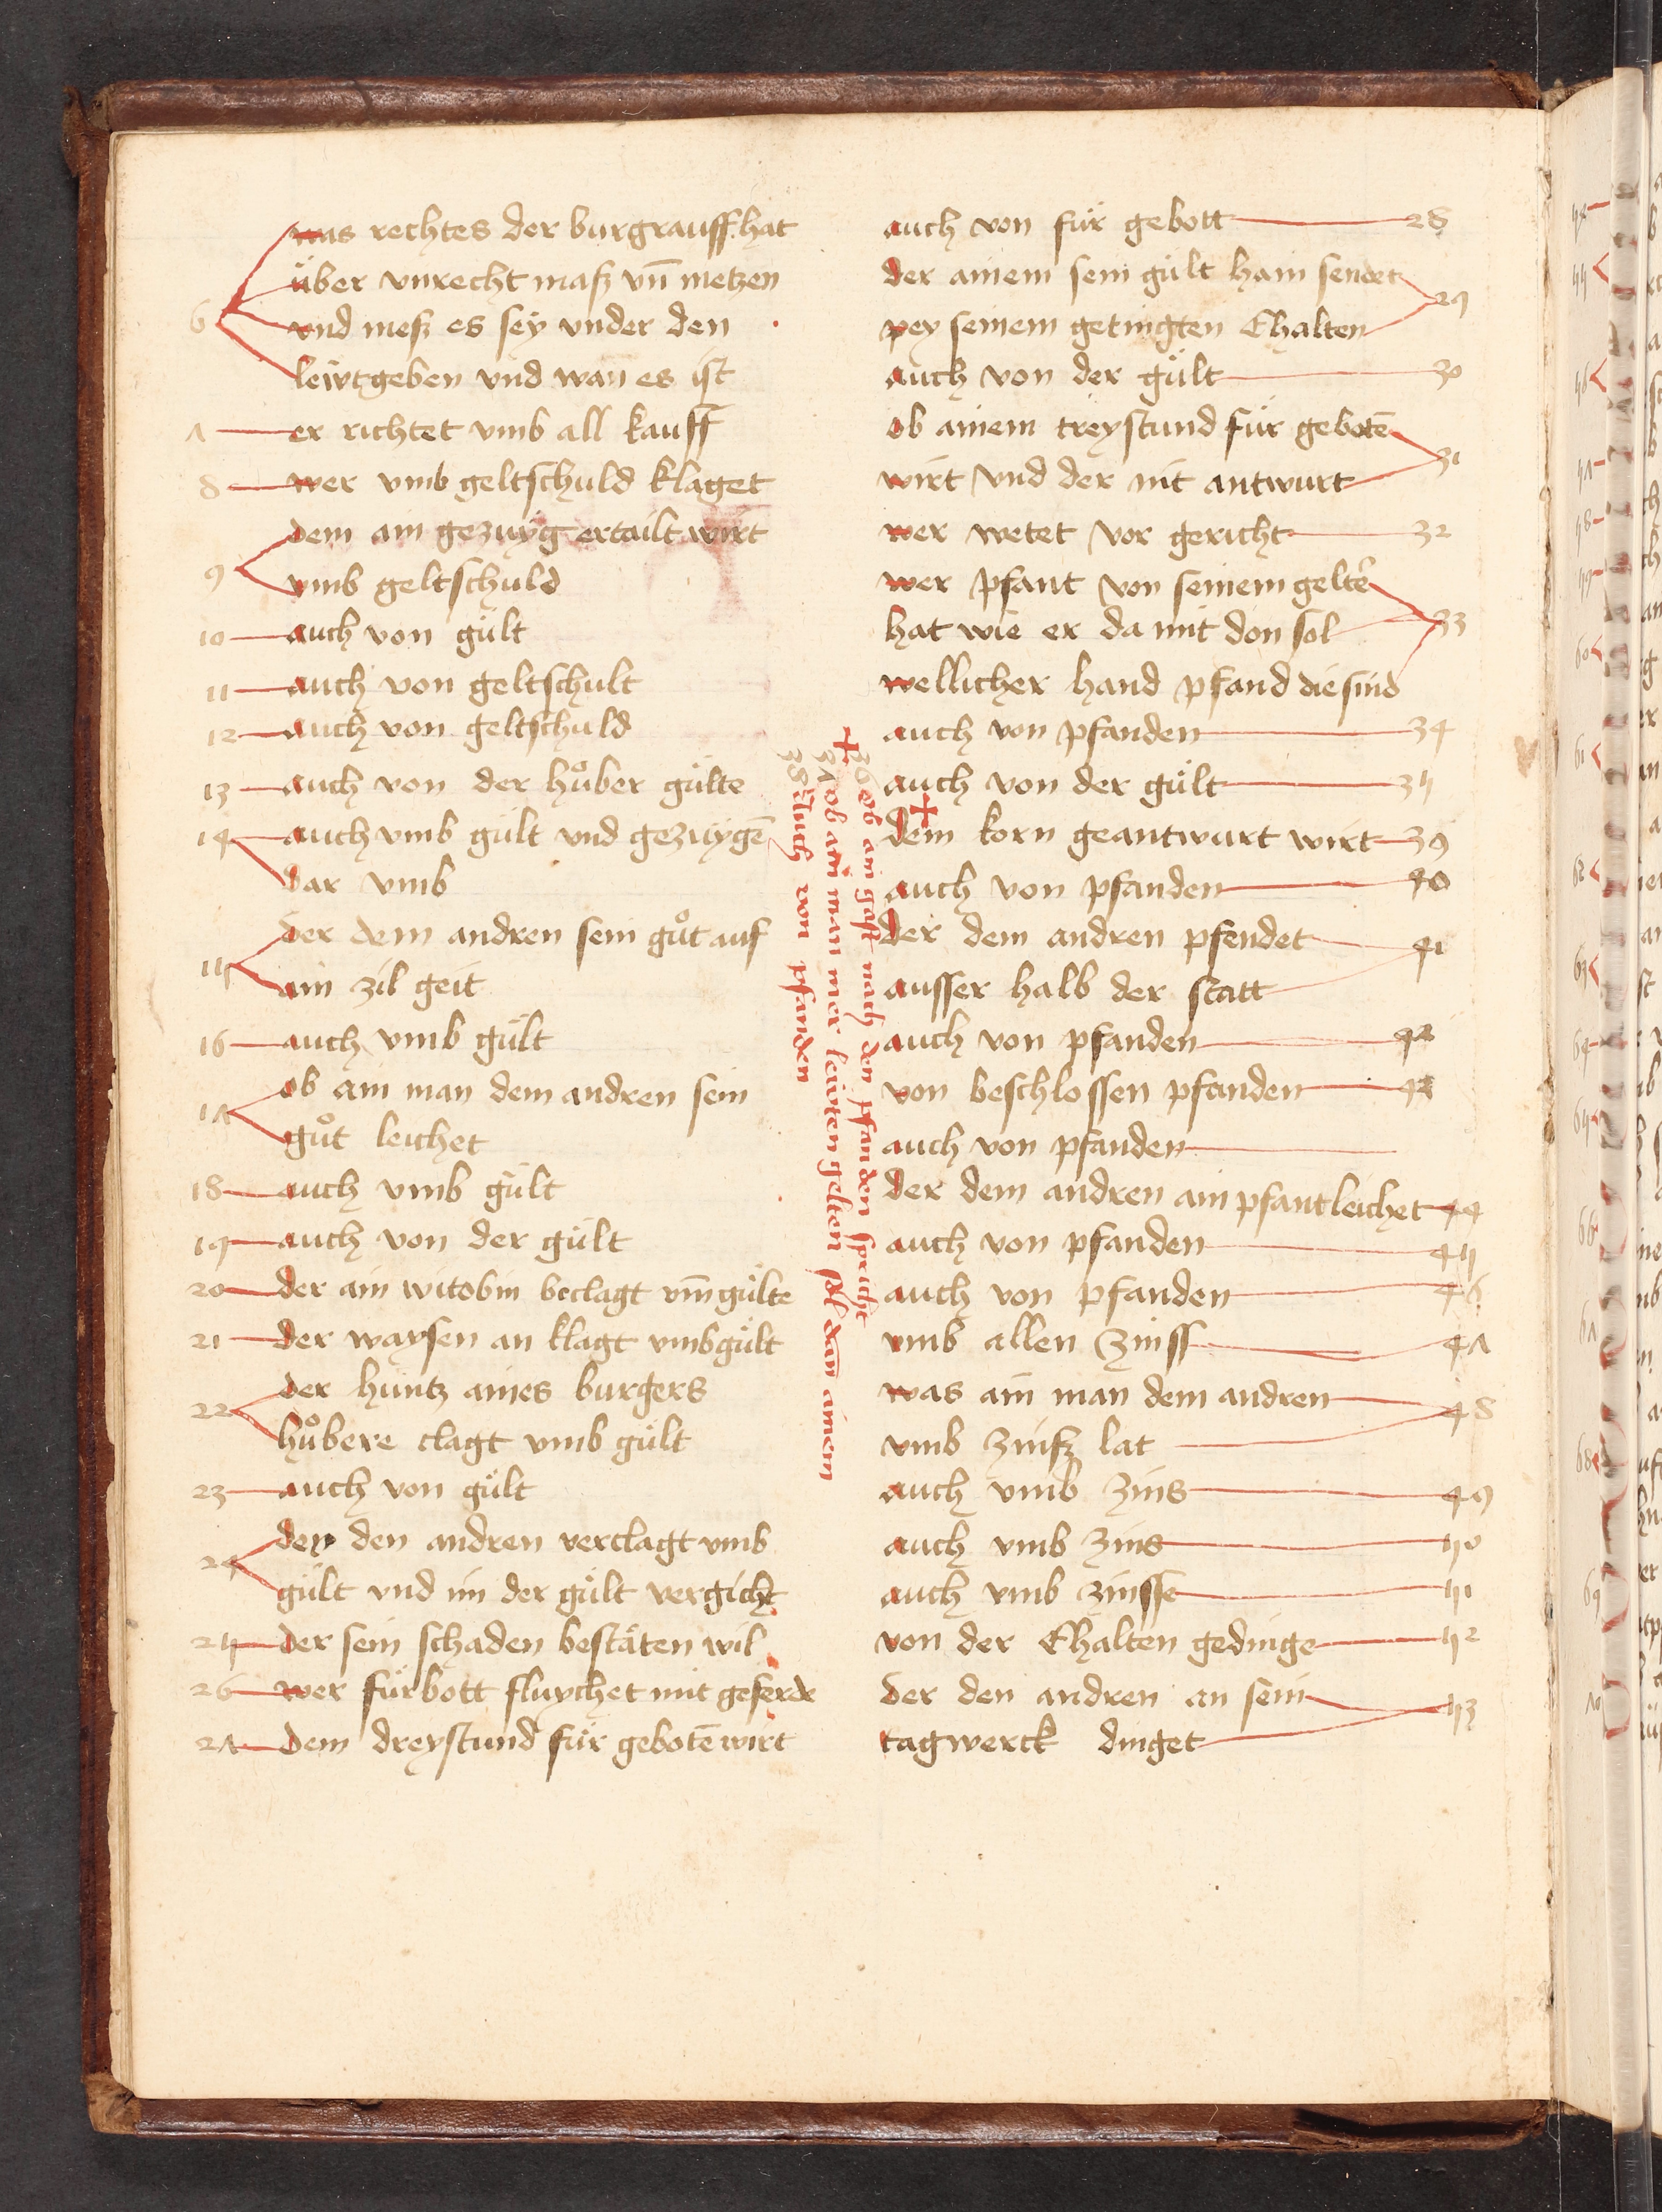 was rechtes der burgrauff hat
über vnrecht masz vn̄ metzen
6 vnd mesz es sey vnder den
leẅtgeben vnd wan̄ es ist
7 er richtet vmb all kauff
8 wer vmb geltschuld klaget
dem ain gezuÿg ertailt wirt
9 vmb geltschuld
10 auch von gült
11 auch von geltschult
12 auch von geltschuld
13 auch von der hůber gülte
14 auch vmb gült vnd gezuÿgē
dar vmb
der dem andren sein gůt auf
15 ain zil geit
16 auch vmb gült
ob ain man dem andren sein
17 gůt leichet
18 auch vmb gült
19 auch von der gült
20 der ain witobin beclagt vm̄ gülte
21 der waysen an klagt vmb gült
der hintz aines burgers
22 hůbere clagt vmb gült
23 auch von gült
der den andren verclagt vmb
24 gült vnd im der gült vergicht
25 der sein schaden bestäten wil
26 wer fürbott fluychet mit geferde
27 dem dreystund für gebotē wirt
36 ob ain gast nach den pfanden spricht
37 ob ain man mer leẅten gelten sol dan̄ ainem
38 Auch von pfanden
auch von für gebott 28
der ainem sein gült haim sendet
pey seinem getingten Ehalten 29
auch von der gült 30
ob ainem treystund für gebotē
wirt vnd der nit antwurt 31
wer wetet vor gericht 32
wer pfant von seinem gelter
hat wie er da mit don sol 33
wellicher hand pfand die sind
auch von pfanden 34
auch von der gült 35
dem korn geantwurt wirt 39
auch von pfanden 40
der dem andren pfendet 41
ausser halb der statt
auch von pfanden 42
von beschlossen pfanden 43
auch von pfanden
der dem andren ain pfant leichet 44
auch von pfanden 45
auch von pfanden 46
vmb allen zinss 47
was ain man dem andren 48
vmb zinsz lat
auch vmb zins 49
auch vmb zins 50
auch vmb zinsse 51
von der Ehalten gedinge 52
der den andren an sein 53
tagwerck dinget